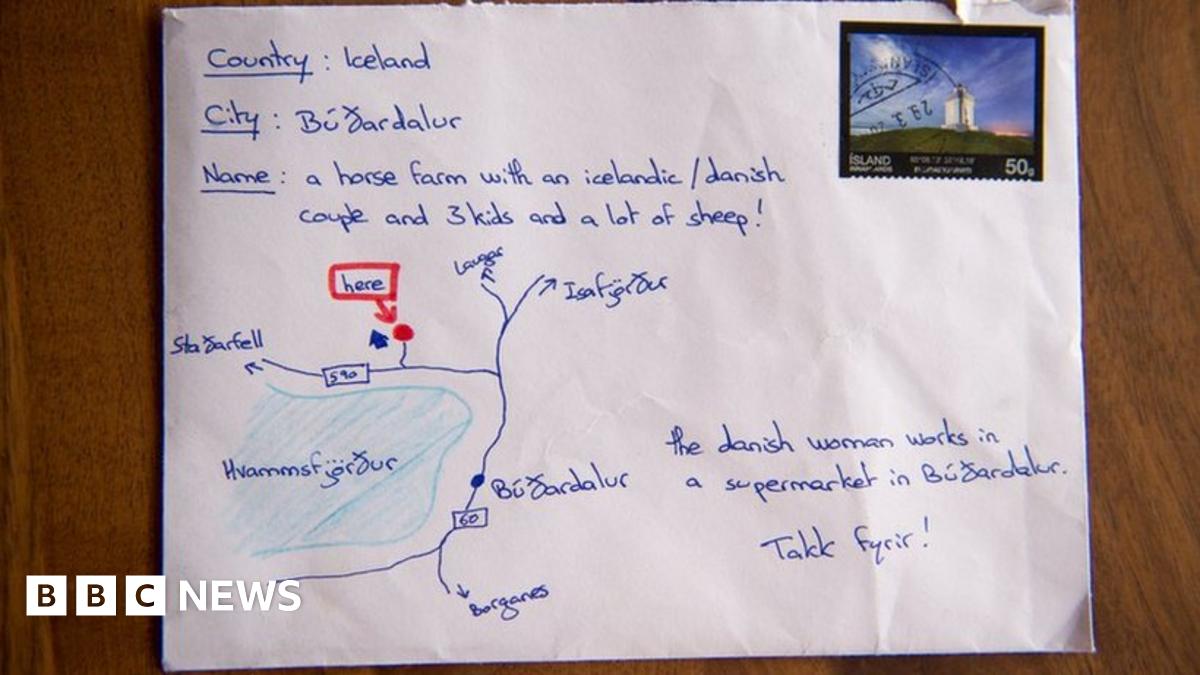 Country : Iceland
City : Búðardalur
Name : a horse farm with an icelandic/danish
couple and 3 kids and a lot of sheep!
ÍSLAND
50g
here
Laugar
Isafjörður
Staðarfell
590
Hvammsfjörður
Búðardalur
60
Borganes
the danish woman works in
a supermarket in Búðardalur.
Takk fyrir!
BBC NEWS